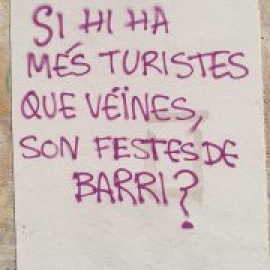 SI HI HA
MÉS TURISTES
QUE VEÏNES,
SON FESTES DE
BARRI?